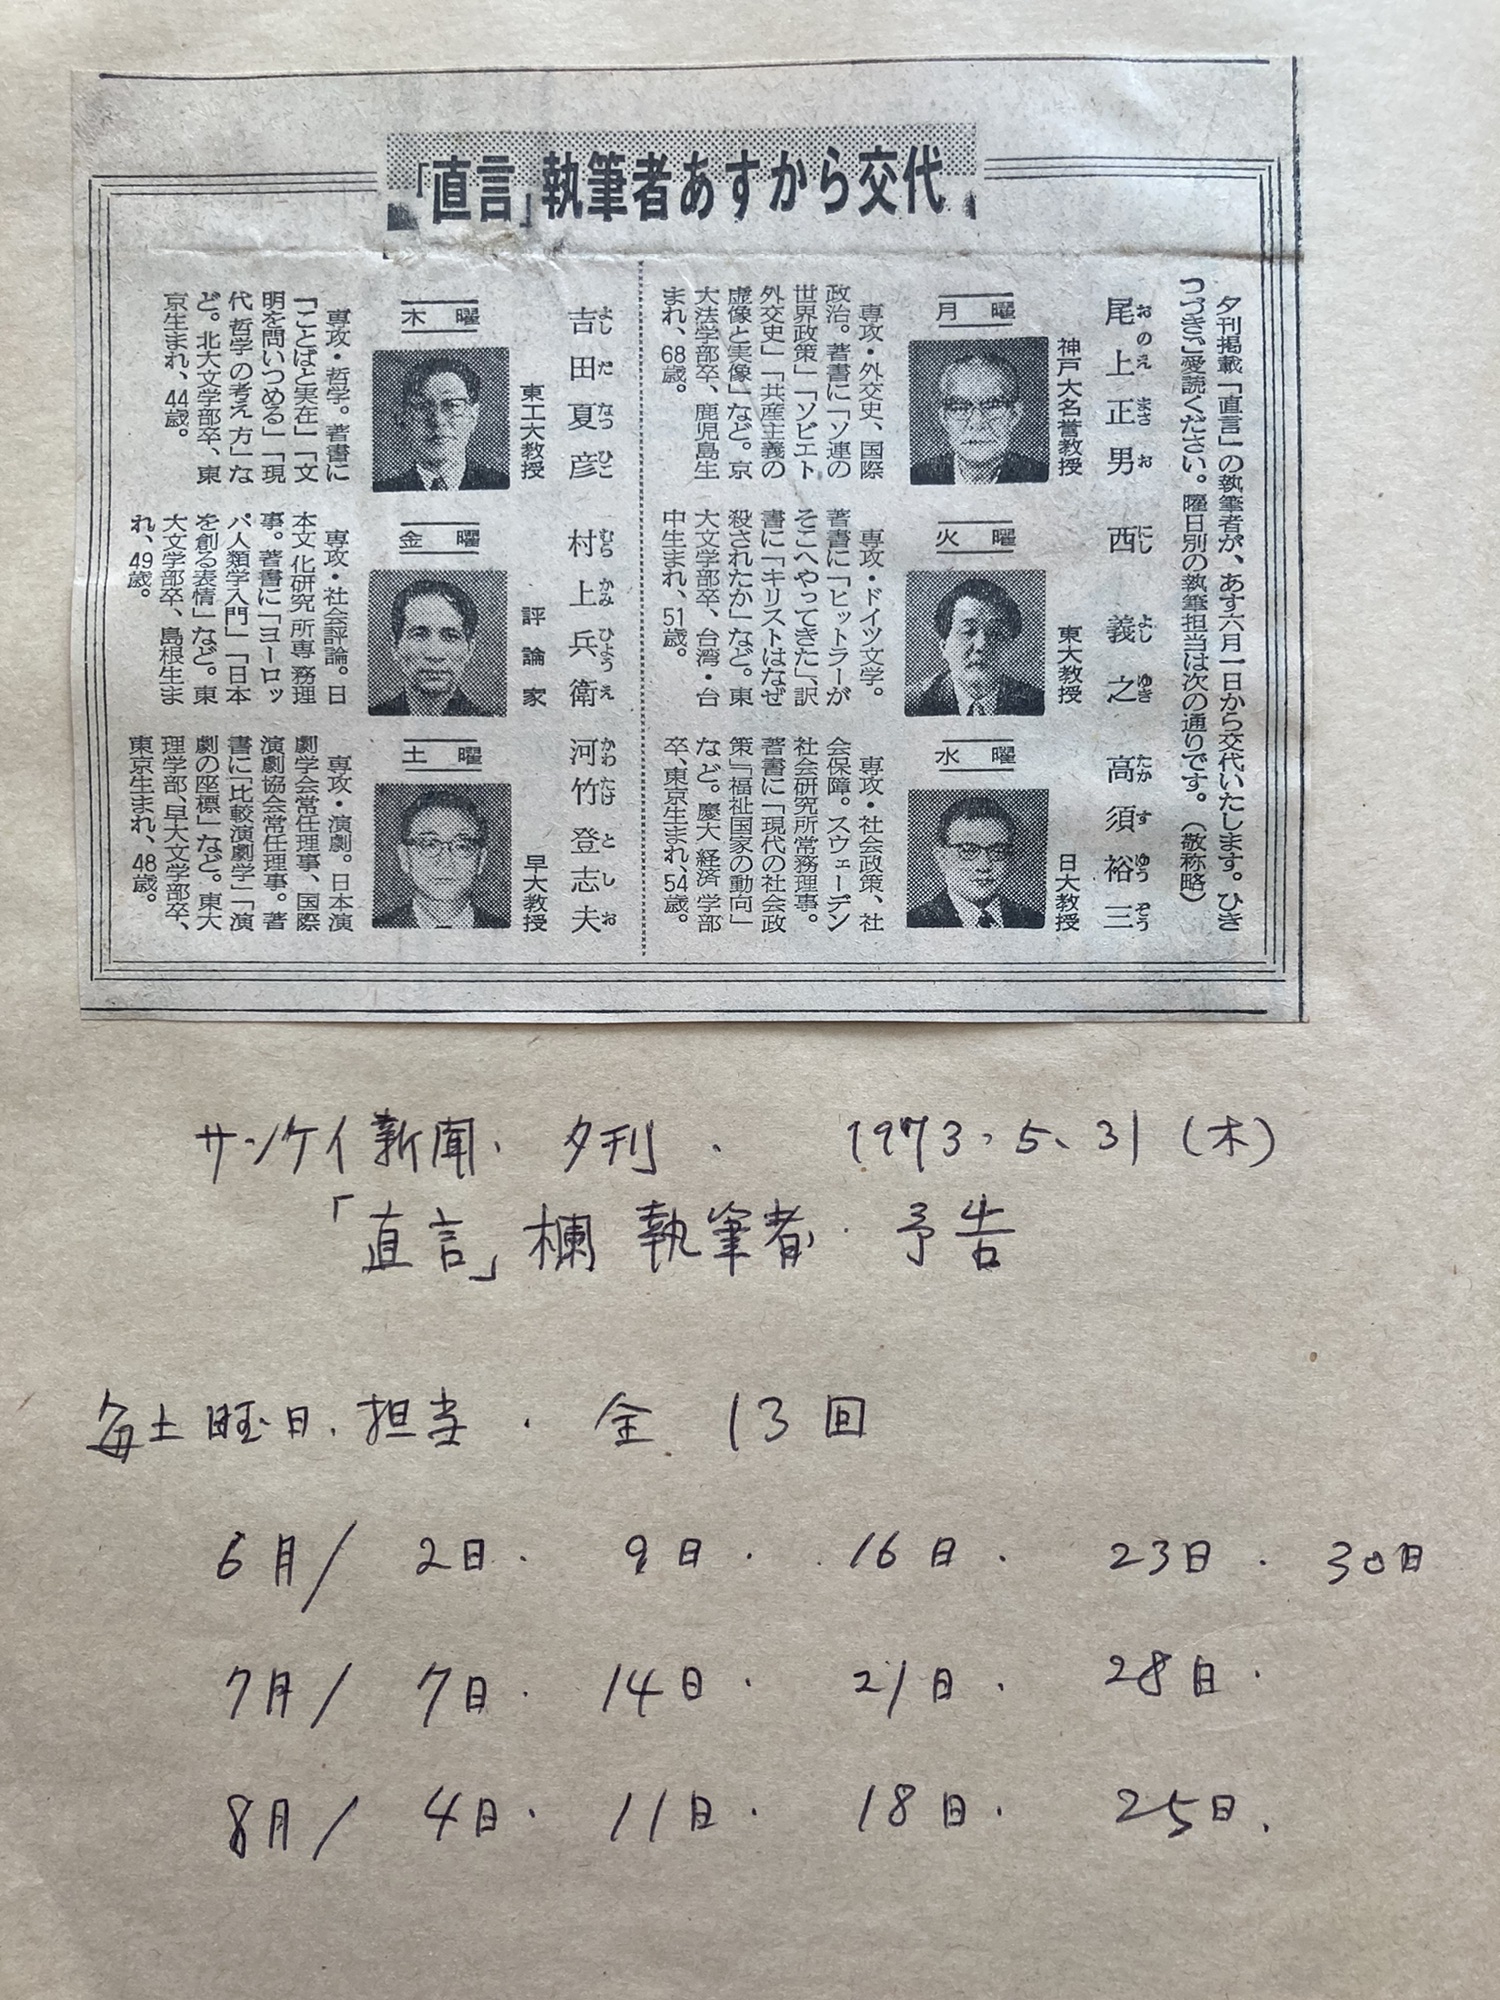 「直言」執筆者あすから交代
夕刊掲載「直言」の執筆者が、あす六月一日から交代いたします。ひき
つづきご愛読ください。曜日別の執筆担当は次の通りです。(敬称略)
月曜
尾上正男
おのえ まさお
神戸大名誉教授
専攻・外交史、国際
政治。著書に「ソ連の
世界政策」「ソビエト
外交史」「共産主義の
虚像と実像」など。京
大法学部卒、鹿児島生
まれ、68歳。
火曜
西義之
にし よしゆき
東大教授
専攻・ドイツ文学。
著書に「ヒットラーが
そこへやってきた」、訳
書に「キリストはなぜ
殺されたか」など。東
大文学部卒、台湾・台
中生まれ、51歳。
水曜
高須裕三
たかす ゆうぞう
日大教授
専攻・社会政策、社
会保障。スウェーデン
社会研究所常務理事。
著書に「現代の社会政
策」「福祉国家の動向」
など。慶大経済学部
卒、東京生まれ、54歳。
木曜
吉田夏彦
よしだ なつひこ
東工大教授
専攻・哲学。著書に
「ことばと実在」「文
明を問いつめる」「現
代哲学の考え方」な
ど。北大文学部卒、東
京生まれ、44歳。
金曜
村上兵衛
むらかみ ひょうえ
評論家
専攻・社会評論。日
本文化研究所専務理
事。著書に「ヨーロッ
パ人類学入門」「日本
を創る表情」など。東
大文学部卒、島根生ま
れ、49歳。
土曜
河竹登志夫
かわたけ としお
早大教授
専攻・演劇。日本演
劇学会常任理事、国際
演劇協会常任理事。著
書に「比較演劇学」「演
劇の座標」など。東大
理学部、早大文学部卒、
東京生まれ、48歳。
サンケイ新聞、夕刊. 1973、5、31(木)
「直言」欄 執筆者・予告
毎土曜日、担当・全13回
6月/ 2日・ 9日・ 16日・ 23日・ 30日
7月/ 7日・ 14日・ 21日・ 28日・
8月/ 4日・ 11日・ 18日・ 25日.